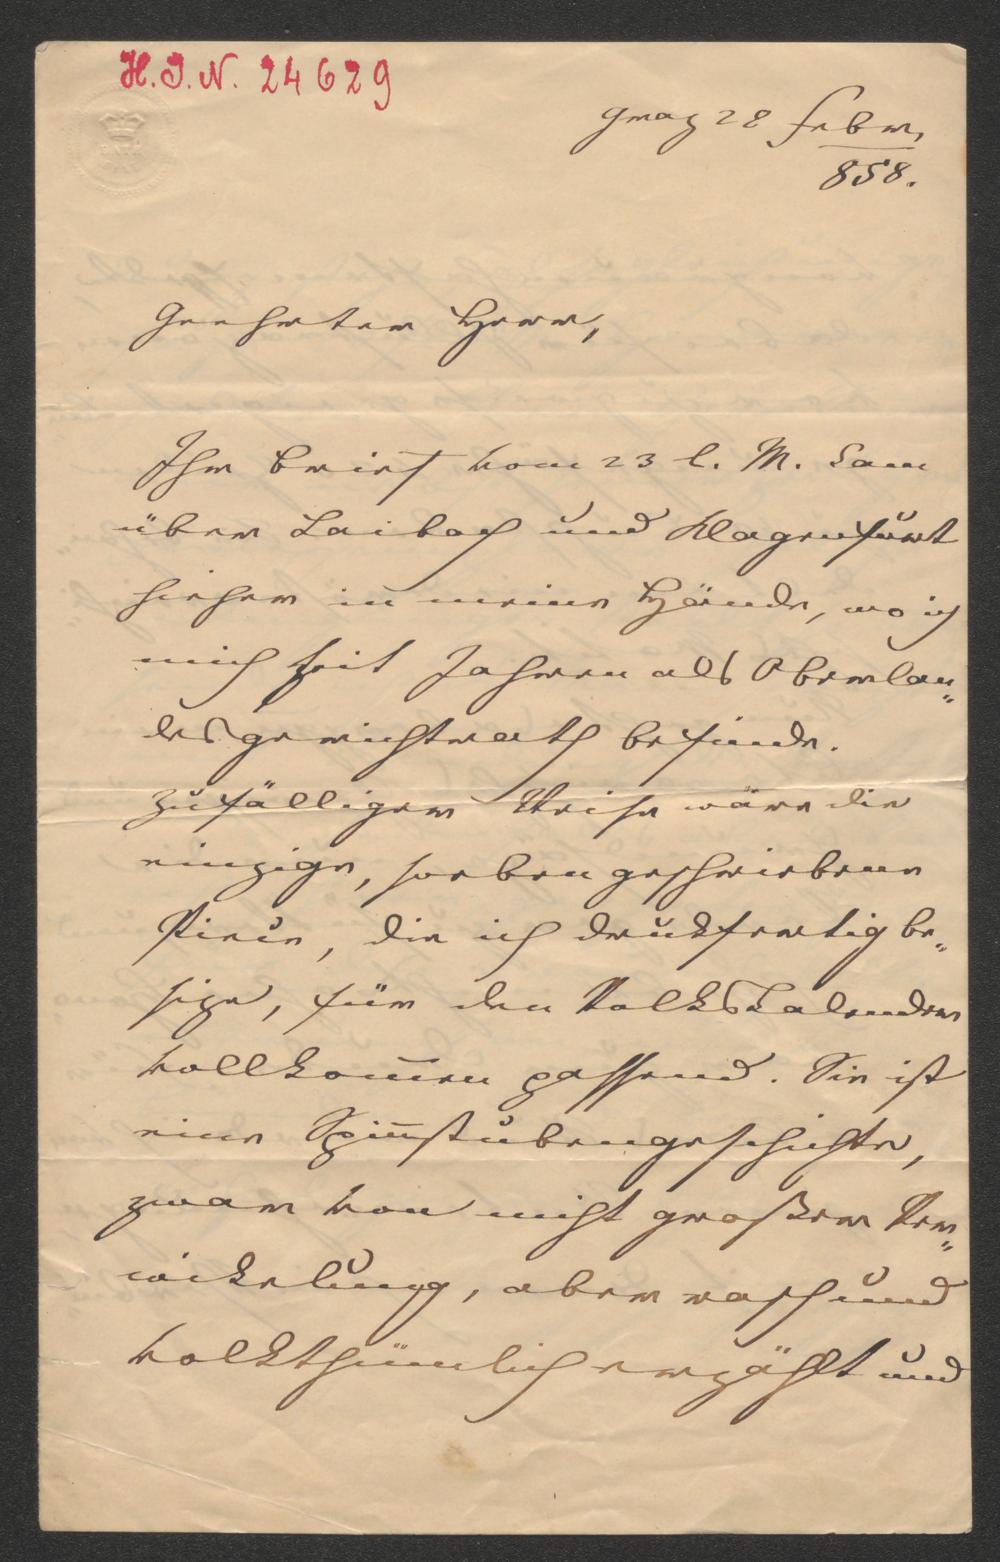 H. I. N. 24629
Graz 28 Febr.
858.
Geehrter Herr,
Ihr Brief vom 23 l. M. kam
über Laibach und Klagenfurt
hieher in meine Hände, wo ich
mich seit Jahren als Oberlan„
desgerichtsrath befinde.
Zufälliger Weise wäre die
einzige, soeben geschriebene
Piece, die ich druckfertig be„
size, für den Volkskalender
vollkom̅en passend. Sie ist
eine Spin̅stubengeschichte,
zwar von nicht großer Ver„
wickelung, aber rasch und
volksthümlich erzählt und